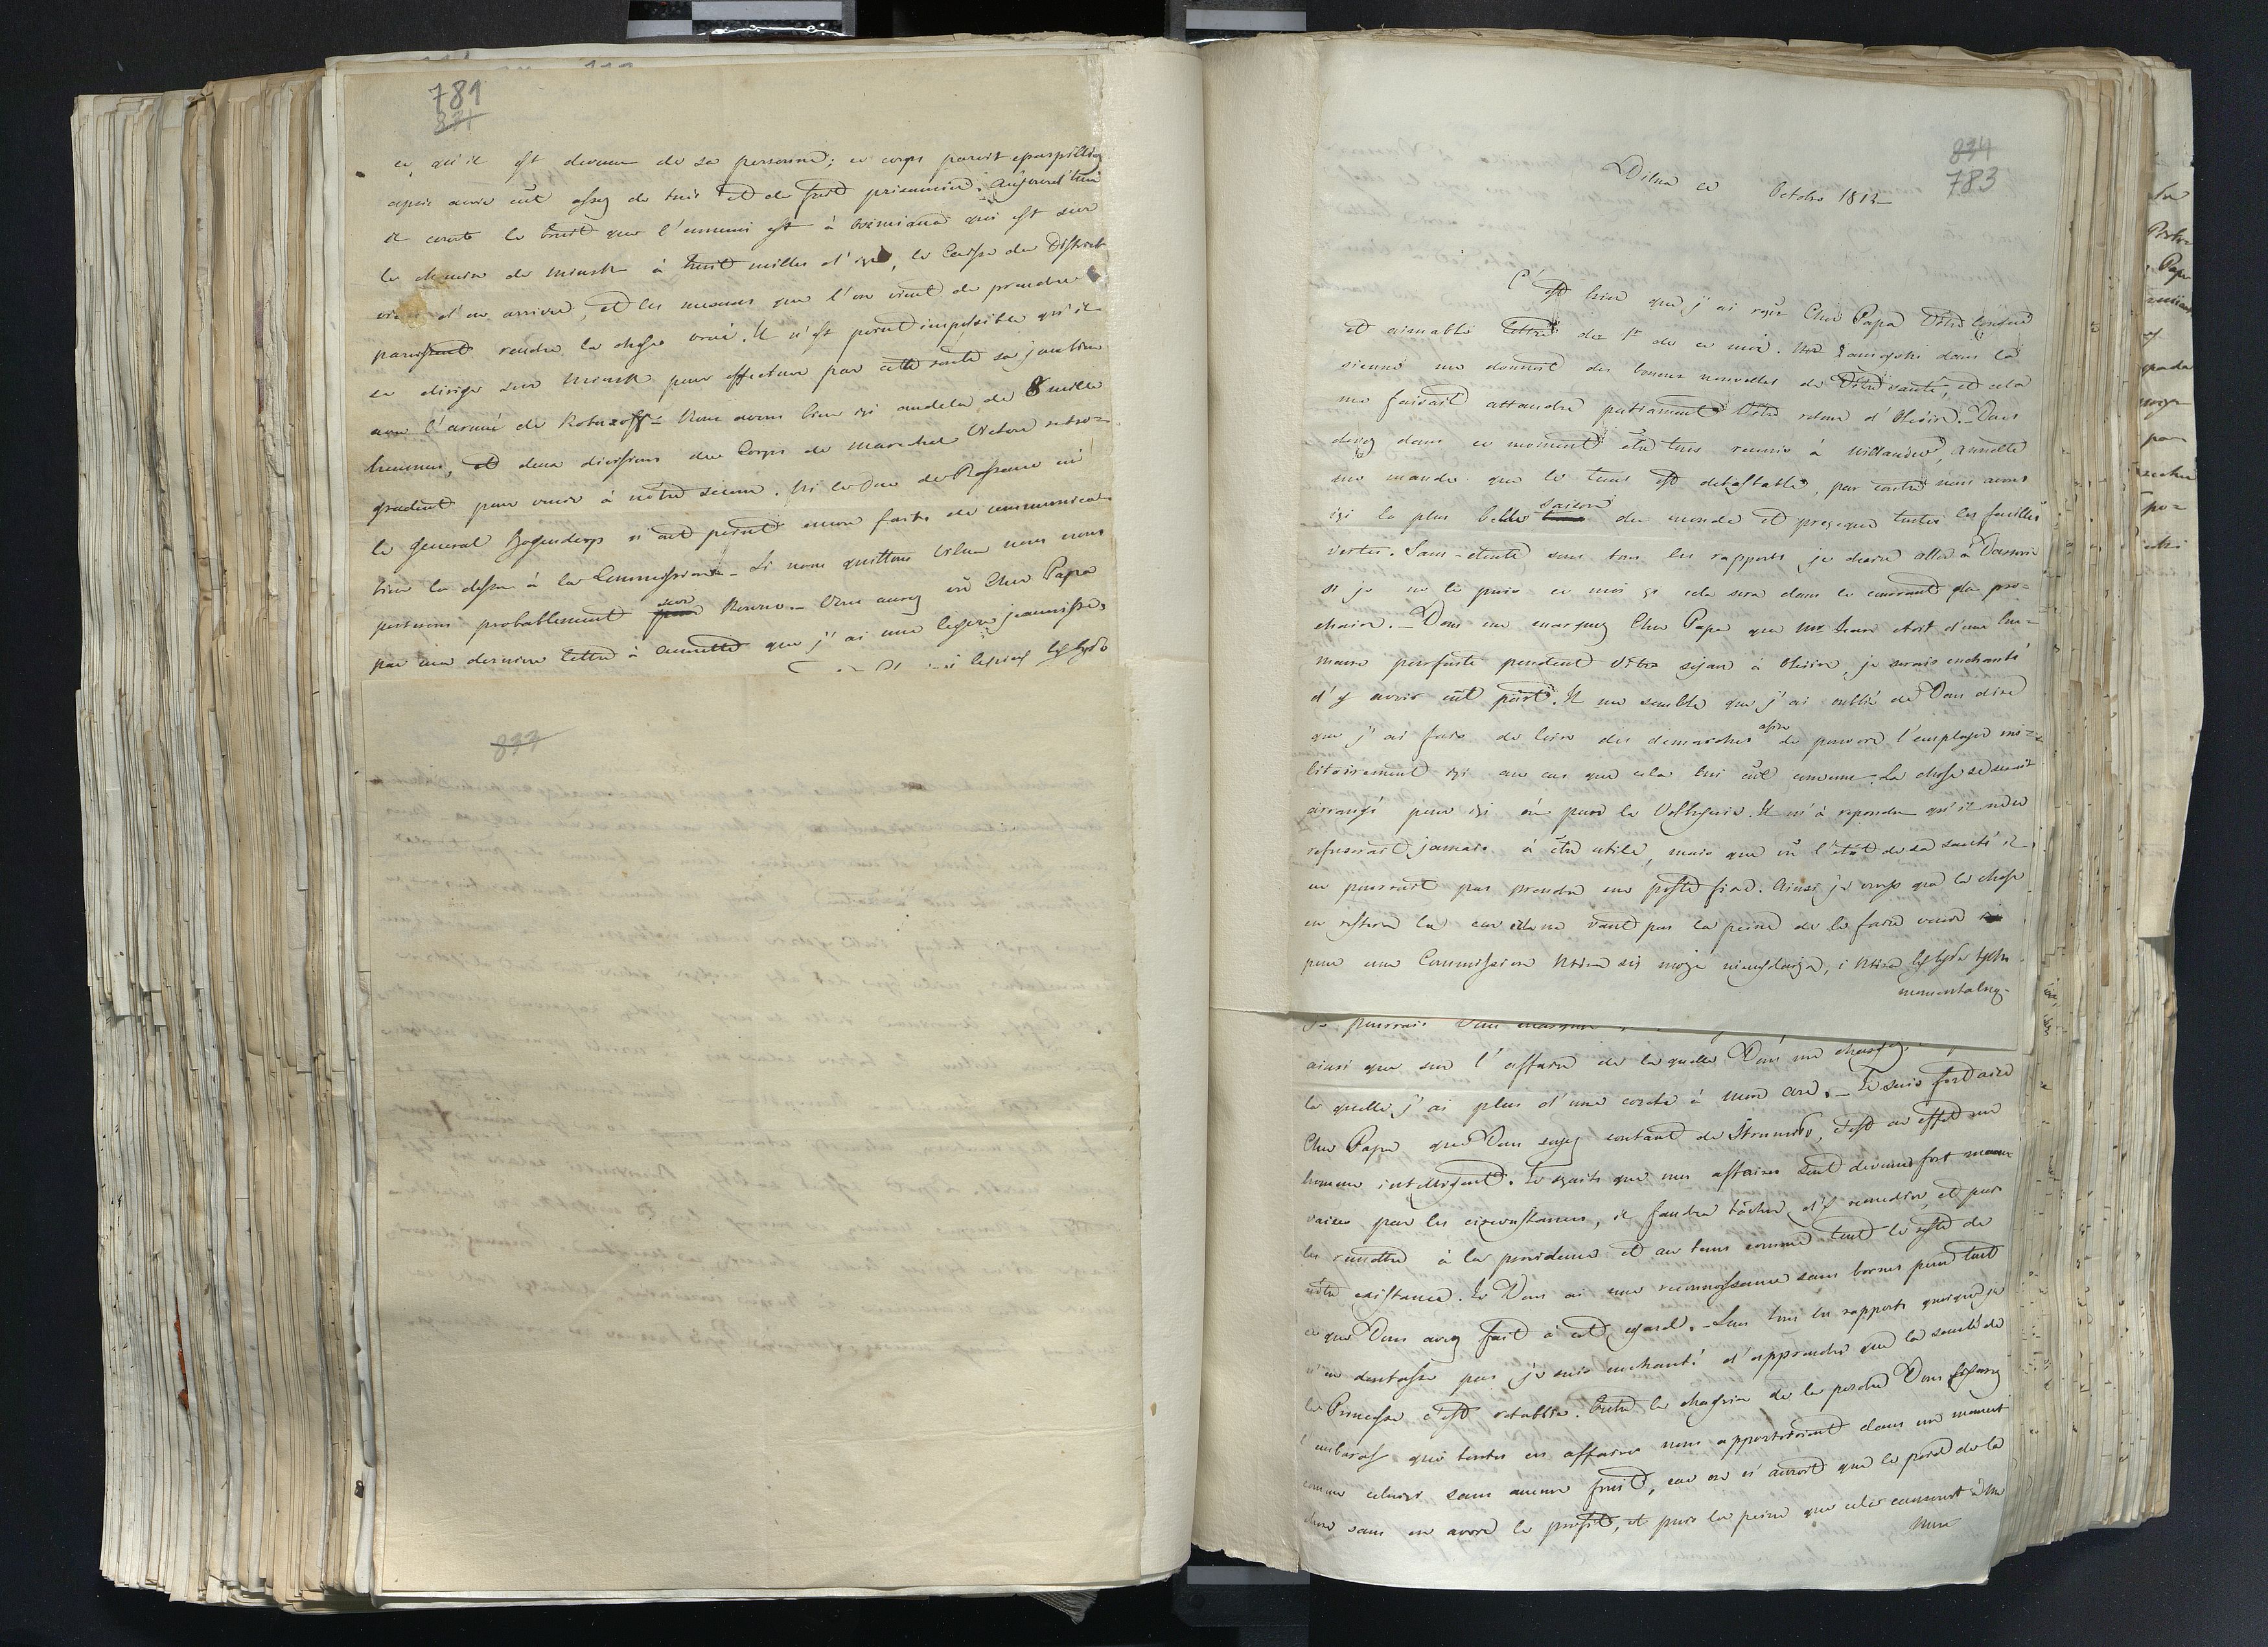 781
831
ce qu'il est devenu de sa personne; ce corps paroit eparpillé
après avoir eut assez de tués et de fait prisonnier. Aujourd'hui
il courte le bruit que l'ennemi est à Oszmiana qui est sur
le chemin de Minsk à huit milles d'izi, la Caisse du District
vient d'en arriver, et les mesures que l'on vient de prendre
paroissent rendre la chose vraie. Il n'est point impossible qu'il
se dirige sur Minsk pour effectuer par cette route sa jonction
avec l'armée de Kotuzoff - Nous avons bien izi audela de 8 mille
hommes, et deux divisions du Corps du marechal Victor retro=
gradent pour venir à nôtre secour. Ni le Duc de Bassano ni
le General Hogendorp n'ont point encore faits de communica=
tion la dessu à la Commission - Si nous quittons Vilna nous nous
porterons probablement sur Kowno - Vous aurez vu Cher Papa
par ma derniere lettre à Annette que j'ai une legere jaunisse,
833
834
783
Vilna ce Octobre 1812
C'est hier que j'ai reçu Cher Papa Votre longue
et aimable lettre du 1r de ce mois. Mr Zamoyski dans la
sienne me donnoit des bonnes nouvelles de Votre santé, et cela
me faisait attandre patiament Votre retour d'Olesin. Vous
devez dans ce moment être tous reunis à Willanów, Annette
me mande que le tems est detestable, par contre nous avons
saison
izi la plus belle du monde et presque toutes les feuilles
vertes. Sans-doute sous tous les rapports je desire aller à Varsovie
si je ne le puis ce mois zi cela sera dans le courrant du pro=
chain. - Vous me marquez Cher Papa que Mr Jean etoit d'une hu=
meur parfaite pendant Votre sejour à Olesin, je serais enchanté
d'y avoir eut part. Il me semble que j'ai oublié de Vous dire
afin
que j'ai fais de loin des demarches de pouvoir l'employer mi=
litairement izi au cas que cela lui eût convenu. La chose se seroit
arrangé pour izi ou pour la Volhynie. Il m'à repondu qu'il ne se
refuserait jamais à être utile, mais que vû l'état de sa santé il
ne pourrait pas prendre une poste fixe. Ainsi je crois que la chose
en restera la car cela ne vaut pas la peine de le faire venir
pour une Commission która się moze nieuda, i która by była tylko
momentalną.
je pourrais Vous marquer
ainsi que sur l'affaire de la quelle Vous me chargez
la quelle j'ai plus d'une corde à mon arc. - Je suis fort aise
Cher Papa que Vous soyez contant de Strumiło, c'est en effet un
homme intelligent. Je sçaits que mes affaires sont devenues fort mau=
vaises par les circonstances, il faudra tâcher d'y remedier, et puis
les remettre à la providence et au tems comme tout le reste de
nôtre existance. Je Vous ai une reconnoissance sans bornes pour tout
ce que Vous avez fait à cet egard. - Sous tous les rapports quoique je
n'en doutasse pas je suis enchanté d'apprendre que la santé de
la Princesse c'est retablie. Outre le chagrin de la perdre Vous sçavez
l'embaras que toutes ces affaires nous apporteroient dans un moment
comme celuizi sans aucun fruit, car on n'auroit que la peine de la
chose sans en avoir le profit, et puis la peine que cela causeroit à Ma
Mere